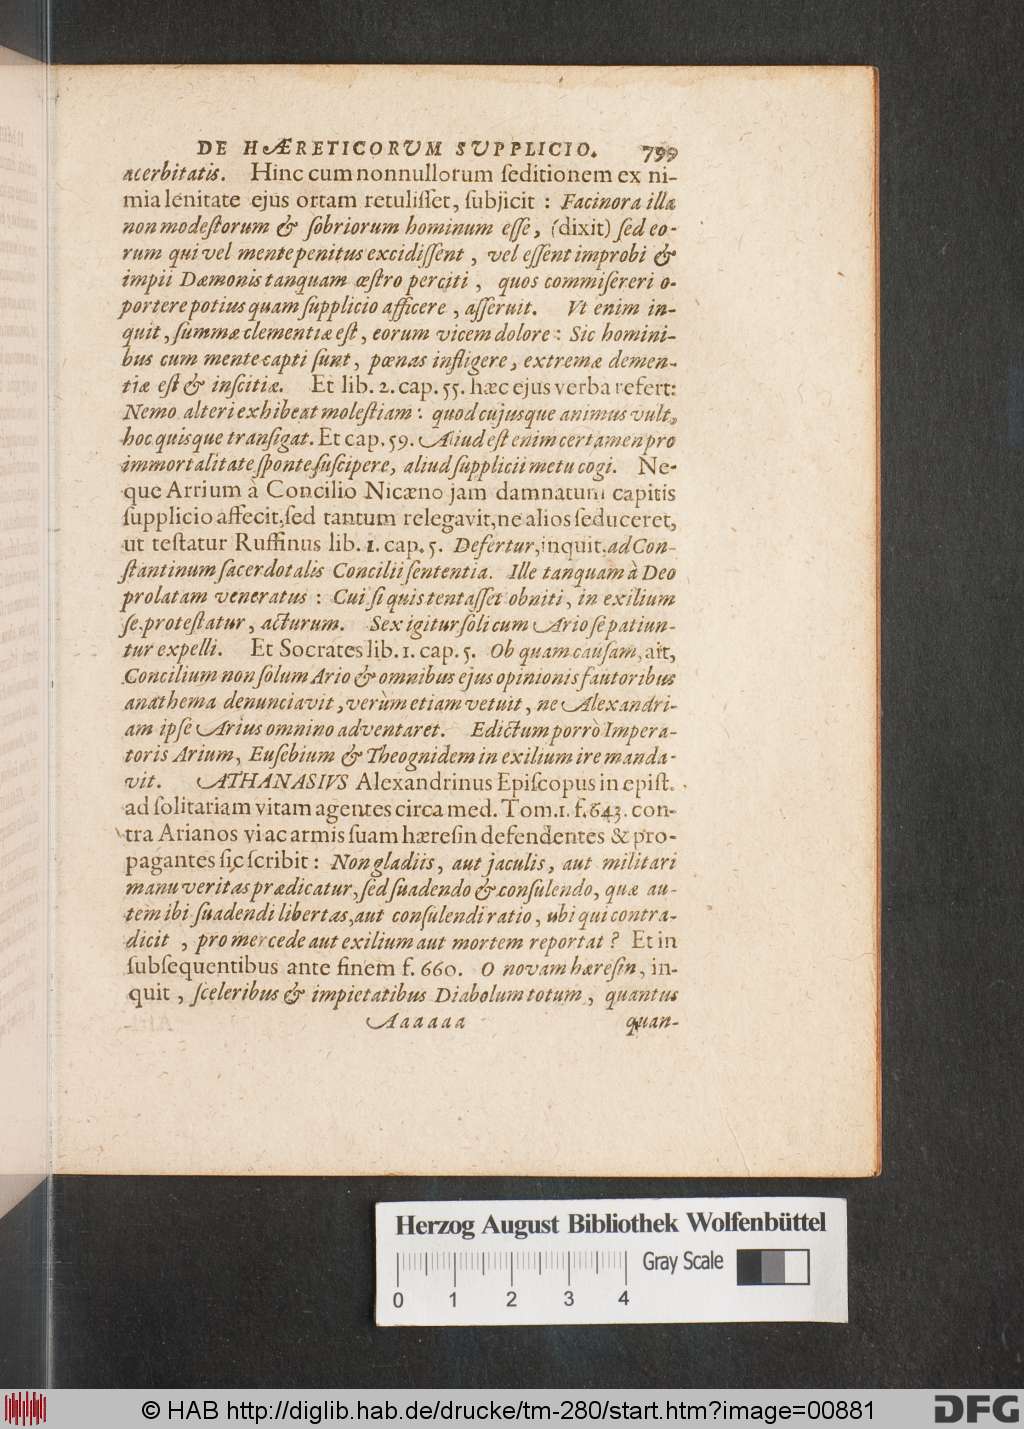 DE HÆRETICORVM SVPPLICIO. 799
acerbitatis. Hinc cum nonnullorum ſeditionem ex ni-
mia lenitate ejus ortam retuliſſet, ſubjicit : Facinora illa
non modeſtorum & ſobriorum hominum eſſe, (dixit) ſed eo-
rum qui vel mente penitus excidiſſent, vel eſſent improbi &
impii Dæmonis tanquam œſtro perciti, quos commiſereri o-
portere potius quam ſupplicio afficere, aſſeruit. Vt enim in-
quit, ſummæ clementiæ eſt, eorum vicem dolore: Sic homini-
bus cum mente capti ſunt, pœnas infligere, extremæ demen-
tiæ eſt & inſcitiæ. Et lib. 2. cap. 55. hæc ejus verba refert:
Nemo alteri exhibeat moleſtiam: quod cujusque animus vult,
hoc quisque tranſigat. Et cap. 59. Aliud eſt enim certamen pro
immortalitate ſponte ſuſcipere, aliud ſupplicii metu cogi. Ne-
que Arrium à Concilio Nicæno jam damnatum capitis
ſupplicio affecit, ſed tantum relegavit, ne alios ſeduceret,
ut teſtatur Ruffinus lib. 1. cap. 5. Defertur, inquit, ad Con-
ſtantinum ſacerdotalis Concilii ſententia. Ille tanquam à Deo
prolatam veneratus : Cui ſi quis tentaſſet obniti, in exilium
ſe proteſtatur, acturum. Sex igitur ſoli cum Ario ſe patiun-
tur expelli. Et Socrates lib. 1. cap. 5. Ob quam cauſam, ait,
Concilium non ſolum Ario & omnibus ejus opinionis fautoribus
anathema denunciavit, verùm etiam vetuit, ne Alexandri-
am ipſe Arius omnino adventaret. Edictum porrò Impera-
toris Arium, Euſebium & Theognidem in exilium ire manda-
vit. ATHANASIVS Alexandrinus Epiſcopus in epiſt.
ad ſolitariam vitam agentes circa med. Tom. 1. f. 643. con-
tra Arianos vi ac armis ſuam hæreſin defendentes & pro-
pagantes ſic ſcribit: Non gladiis, aut jaculis, aut militari
manu veritas prædicatur, ſed ſuadendo & conſulendo, quæ au-
tem ibi ſuadendi libertas, aut conſulendi ratio, ubi qui contra-
dicit, pro mercede aut exilium aut mortem reportat? Et in
ſubſequentibus ante finem f. 660. O novam hæreſin, in-
quit, ſceleribus & impietatibus Diabolum totum, quantus
Aaaaaa quan-
Herzog August Bibliothek Wolfenbüttel
Gray Scale
0 1 2 3 4
© HAB http://diglib.hab.de/drucke/tm-280/start.htm?image=00881
DFG